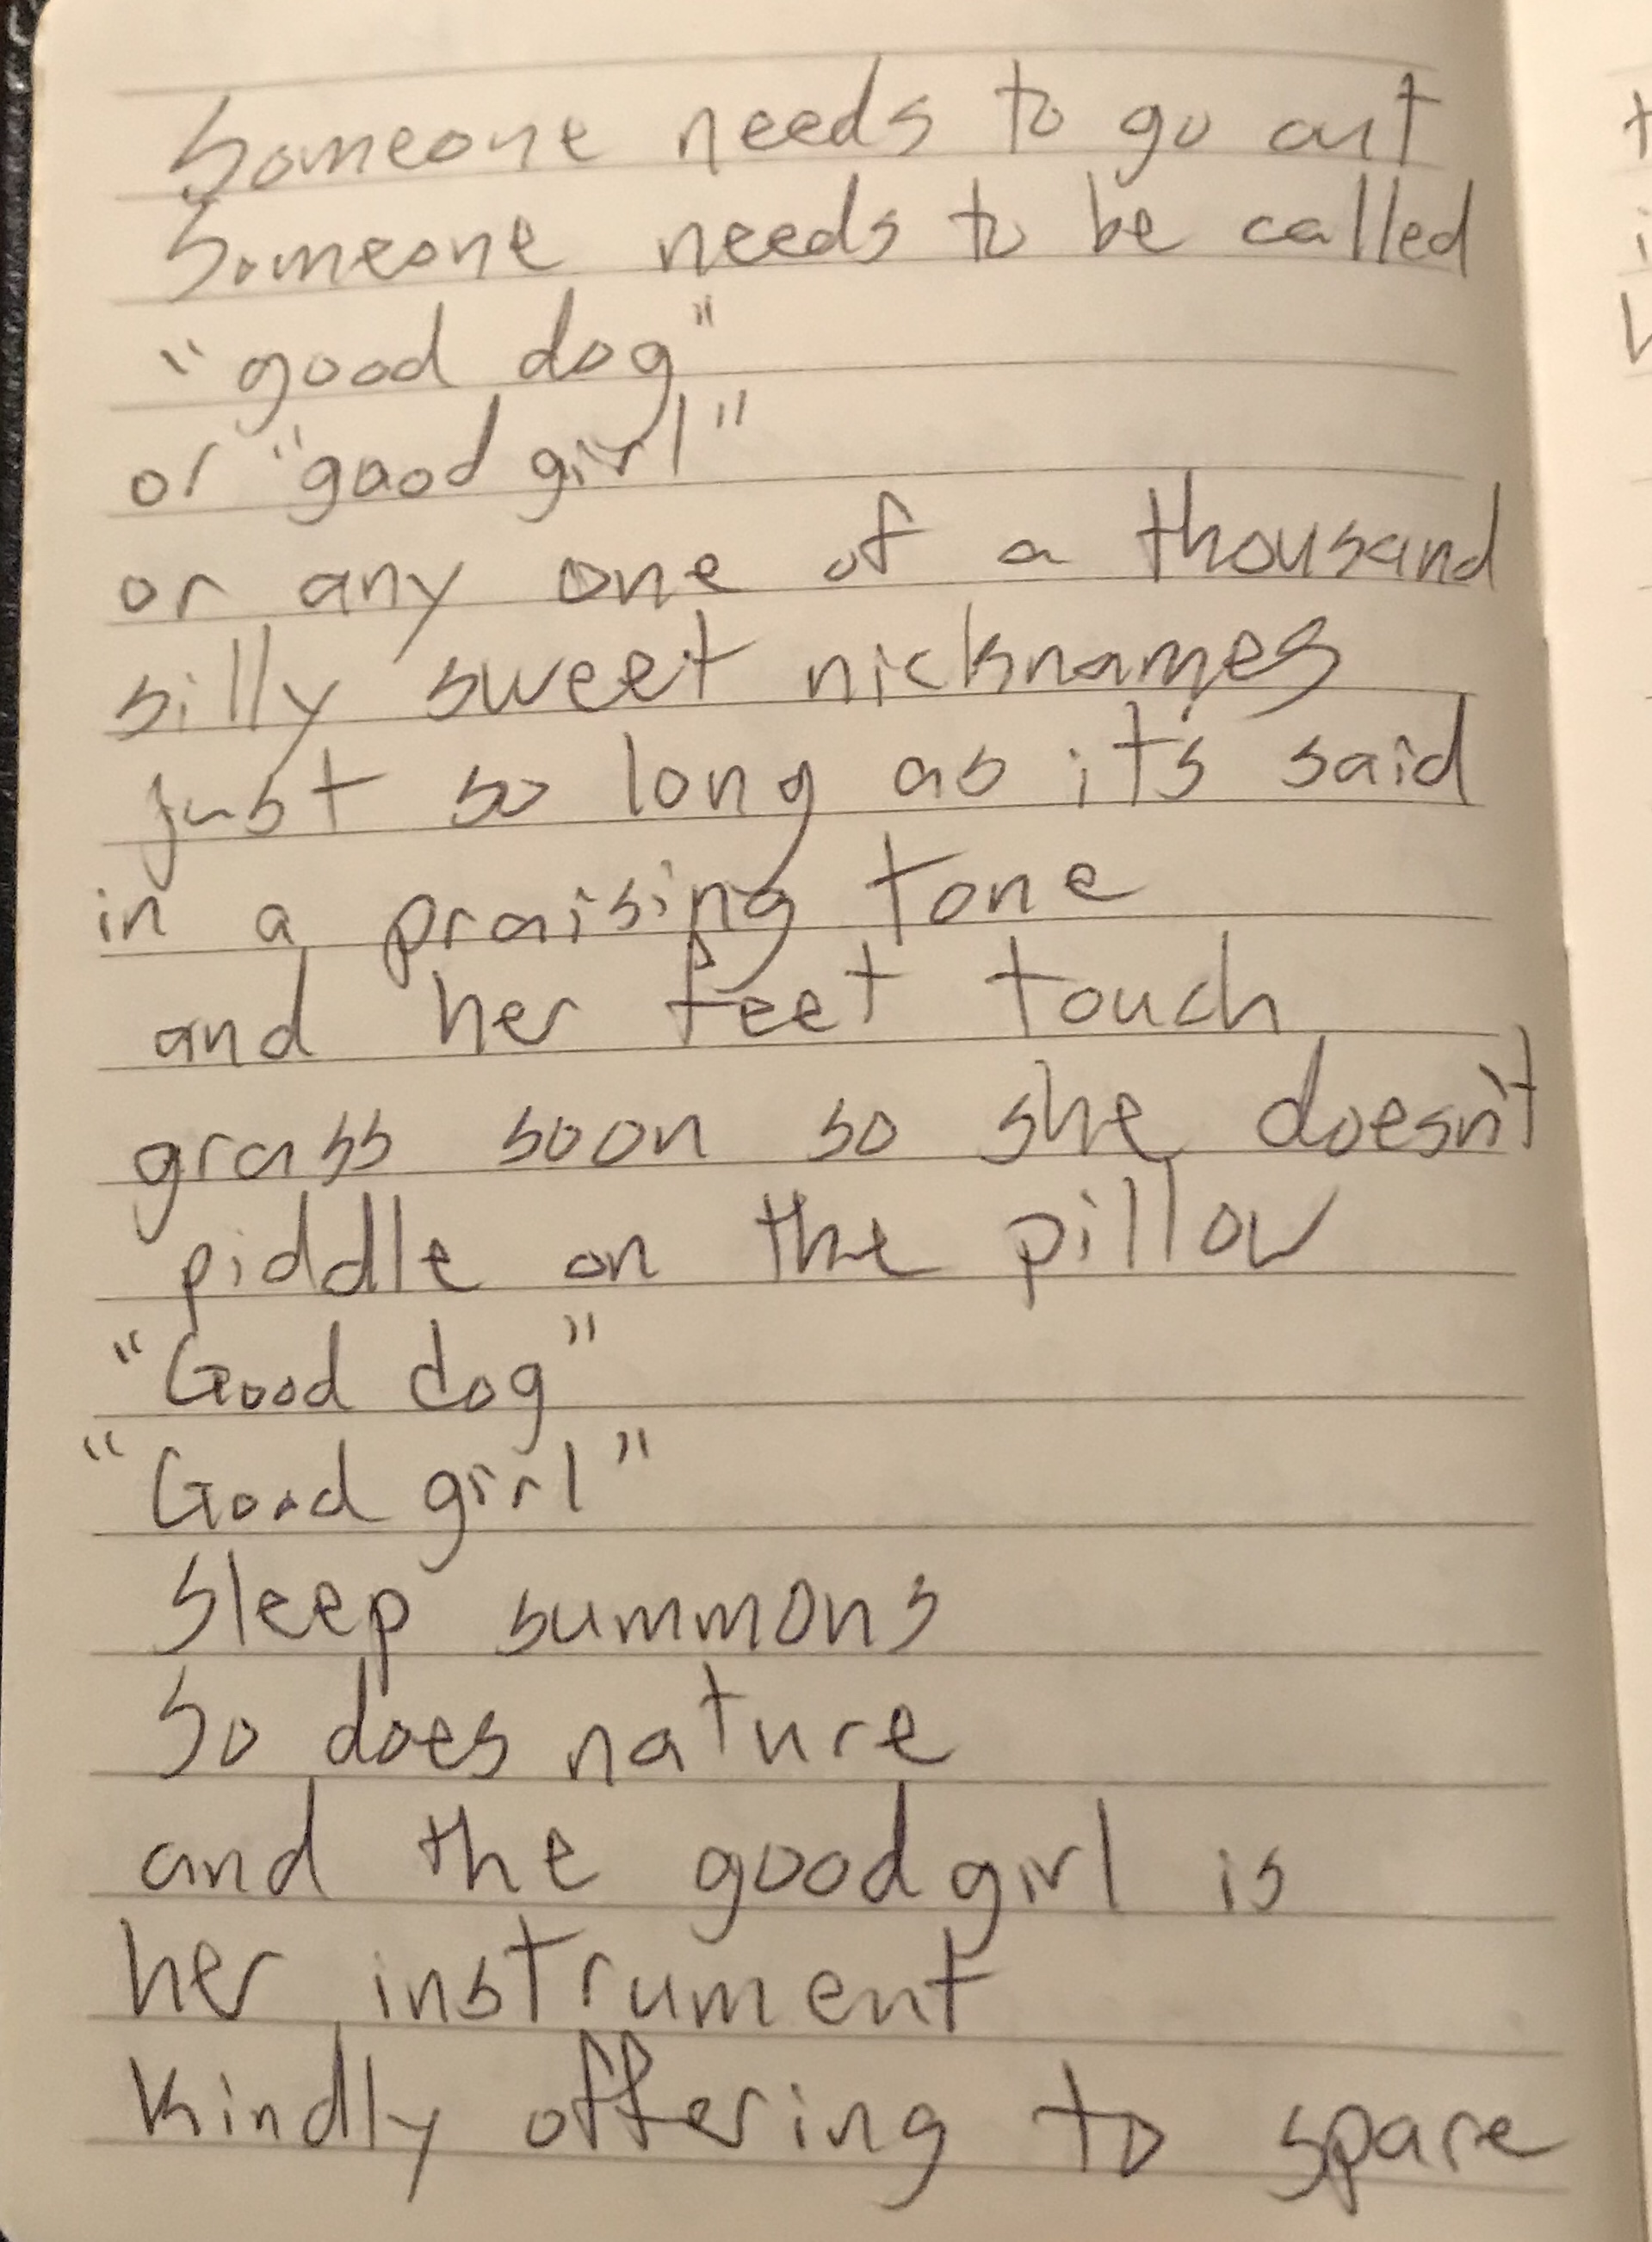 Someone needs to go out
Someone needs to be called
"good dog"
or "good girl"
or any one of a thousand
silly sweet nicknames
just so long as it's said
in a praising tone
and her feet touch
grass soon so she doesn't
piddle on the pillow
"Good dog"
"Good girl"
Sleep summons
So does nature
and the good girl is
her instrument
Kindly offering to spare